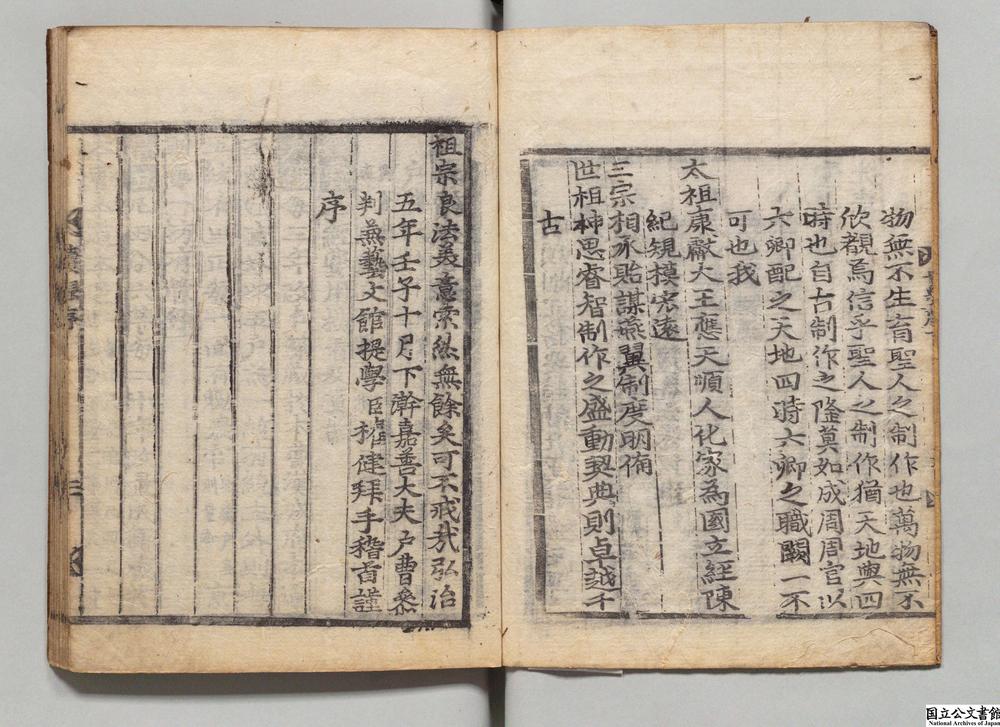 物無不生育聖人之制作也萬物無不
欣覩焉信乎聖人之制作猶天地與四
時也自古制作之隆莫如成周周官以
六卿配之天地四時六卿之職闕一不
可也我
太祖康獻大王應天順人化家為國立經陳
紀規模宏遠
三宗相承貽謀燕翼制度明備
世祖神思睿智制作之盛動契典則卓越千
古
祖宗良法美意索然無餘矣可不戒哉弘治
五年壬子十月下澣嘉善大夫戶曹叅
判兼藝文館提學臣權健拜手稽首謹
序
國立公文書館
National Archives of Japan